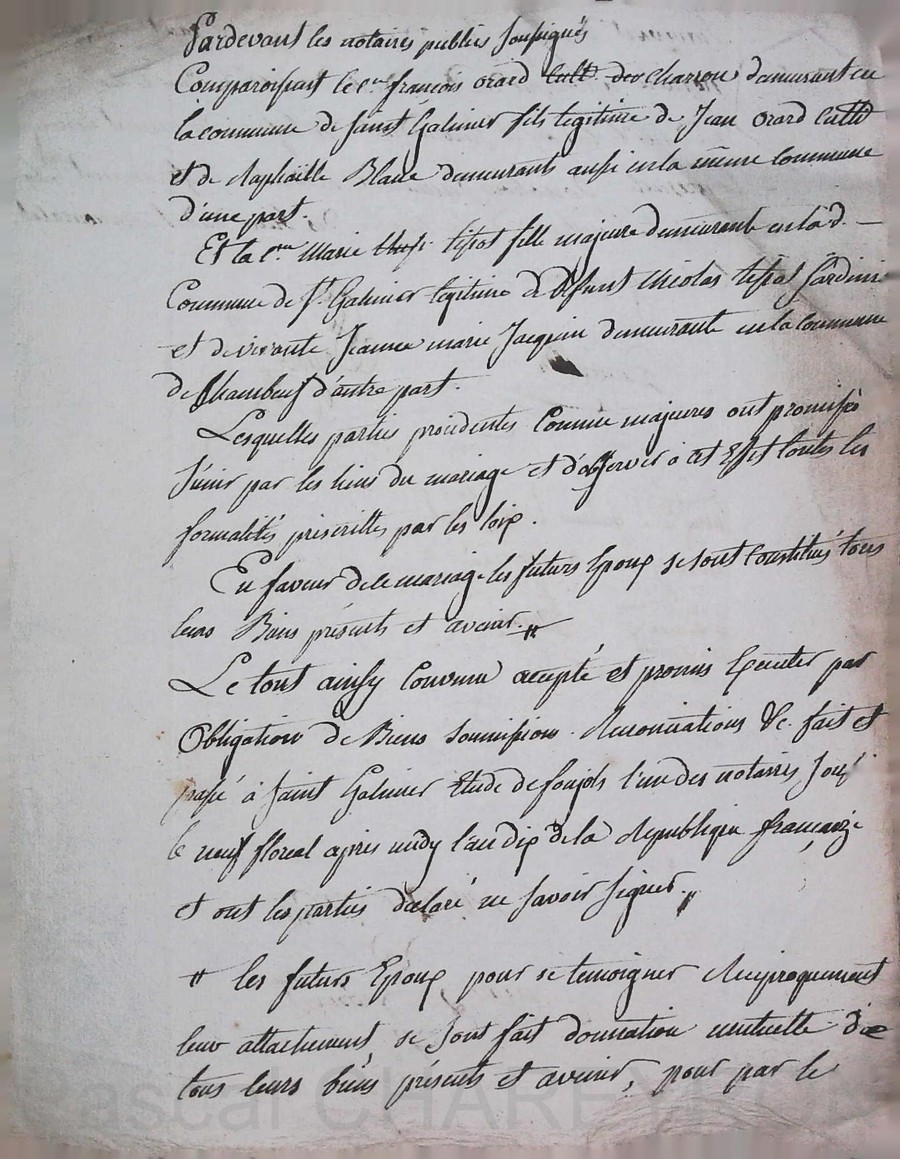 Pardevant les notaires publics soussignés
Comparoissent le c.en françois orard cult. charron demeurant en
la commune de saint Galmier fils legitime de Jean orard Cultr
et de Raphaëlle Blanc demeurants aussi en la même Commune
d'une part.
Et la c.enne Marie tipot fille majeure demeurante en lad. —
Commune de St. Galmier legitime de defunt Nicolas tipot Jardinier
et de vivante Jeanne marie Jacquin demeurante en la Commune
de Chambeuf d'autre part.
Lesquelles parties procedentes Comme majeures ont promises
s'unir par les liens du mariage et d'observer à cet Effet toutes les
formalités prescrittes par les loix.
En faveur de ce mariage les futurs Epoux se sont Constitués tous
leurs Biens présents et avenir. #
Le tout ainsy Convenu accepté et promis Executer par
Obligation de Biens soumission. Renonciations &c. fait et
passé à saint Galmier Etude de l'un des notaires sousé.
le neuf floreal après midy l'an dix de la Republique françaize
et ont les parties déclaré ne savoir signer.
# les futurs Epoux pour se temoigner Reciproquement
leur attachement se sont fait donnation mutuelle de
tous leurs biens présents et avenir, pour par le
ascal CHAREYRON